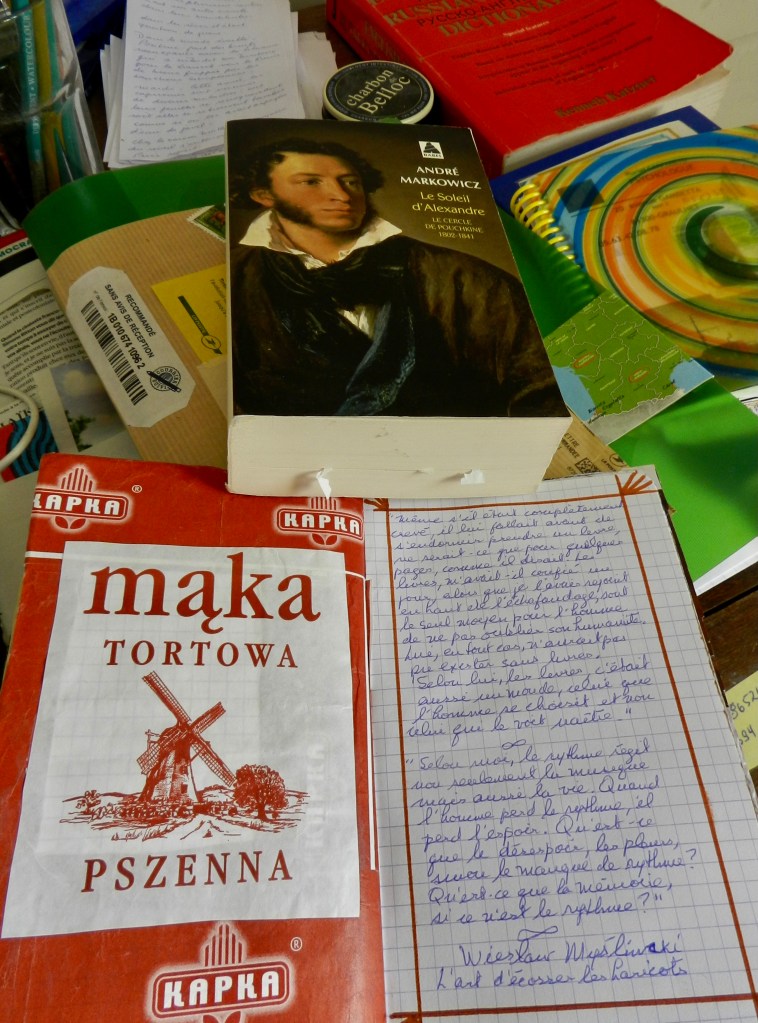 RUSSIAN
DICTIONARY
Kenneth Katzner
charbon de
Belloc
WATERCOLOUR
BABEL
ANDRÉ
MARKOWICZ
Le Soleil
d'Alexandre
LE CERCLE
DE POUCHKINE
1802-1841
RECOMMANDÉ
SANS AVIS DE RÉCEPTION
1B 010 674 1096 2
KAPKA ®
KAPKA ®
mąka
TORTOWA
PSZENNA
KAPKA ®
"même s'il était complètement
crevé, il lui fallait avant de
s'endormir prendre un livre
ne serait-ce que pour quelques
pages, comme il disait. Les
livres, m'avait-il confié un
jour, alors que je l'avais rejoint
en haut de l'échafaudage, sont
le seul moyen pour l'homme
de ne pas oublier son humanité.
Lui, en tout cas, n'aurait pas
pu exister sans livres.
Selon lui, les livres, c'était
aussi un monde, celui que
l'homme se choisit et non
celui qui le voit naître."
"Selon moi, le rythme régit
non seulement la musique
mais aussi la vie. Quand
l'homme perd le rythme il
perd l'espoir. Qu'est-ce
que le désespoir, les pleurs,
sinon le manque de rythme?
Qu'est-ce que la mémoire,
si ce n'est le rythme?"
Wiesław Myśliwski
L'art d'écosser les haricots